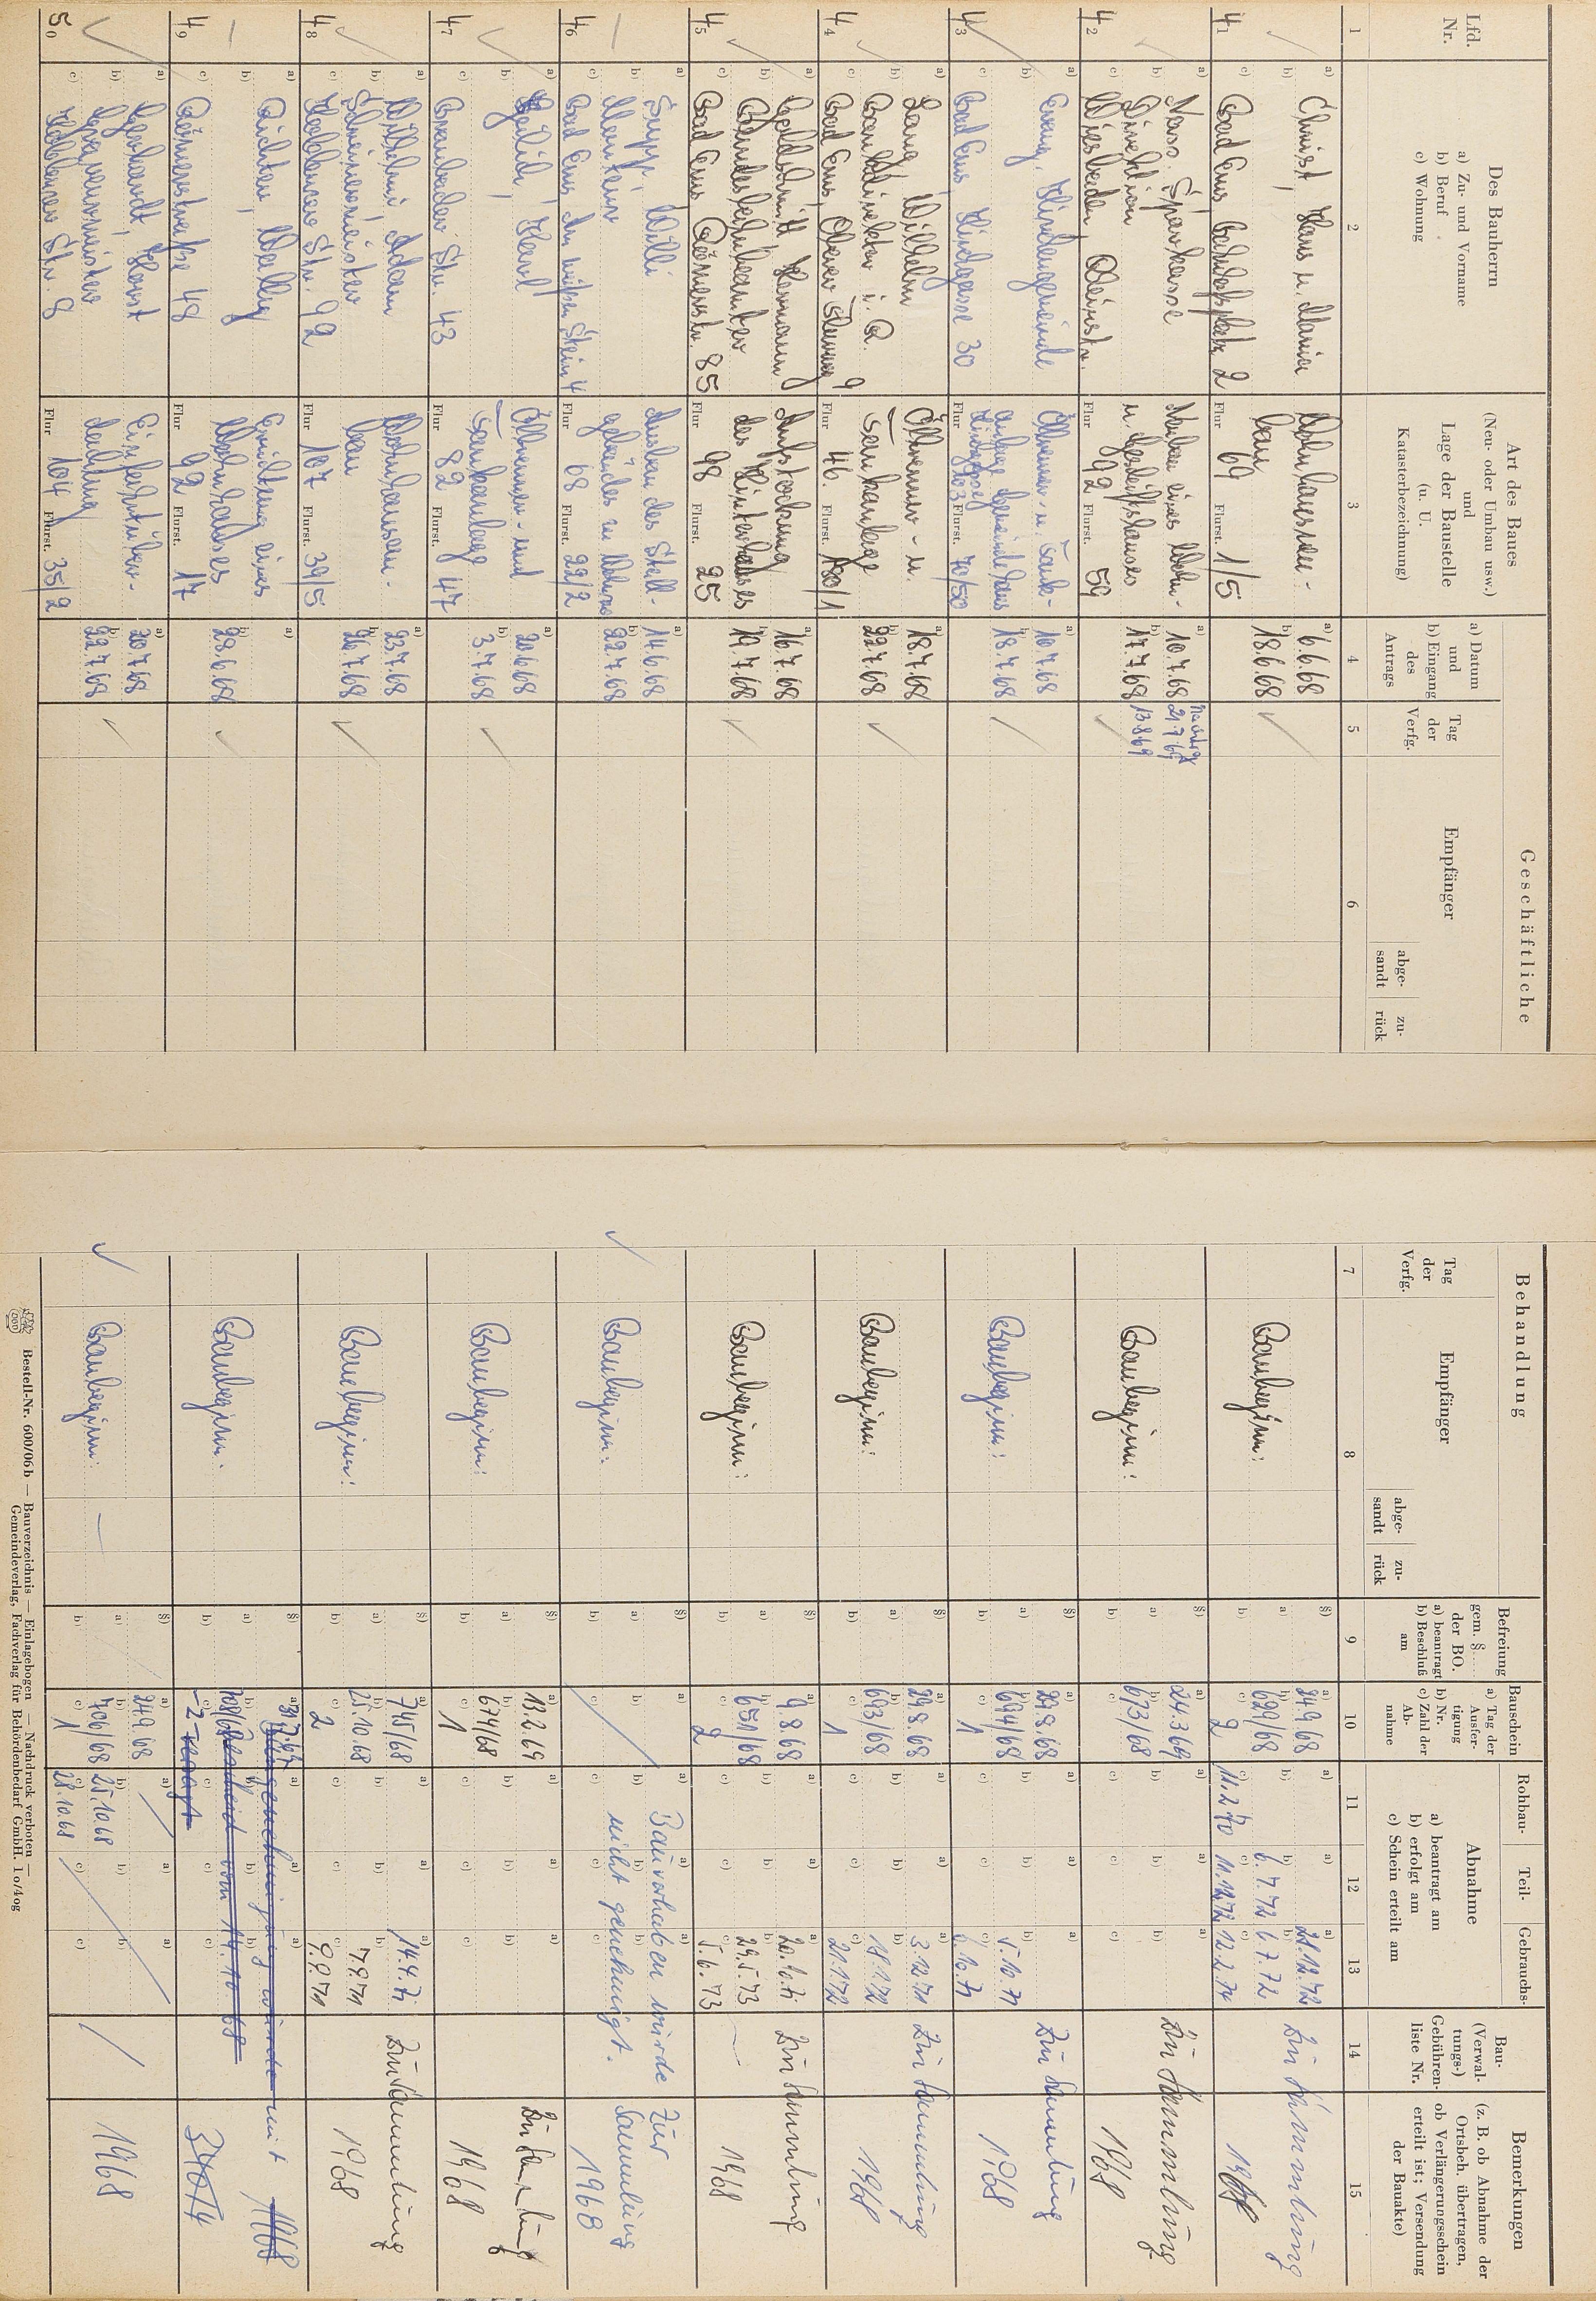 Geschäftliche
Lfd.
Nr.
Des Bauherrn
a) Zu- und Vorname
b) Beruf
c) Wohnung
Art des Baues
(Neu- oder Umbau usw.)
und
Lage der Baustelle
(u. U.
Katasterbezeichnung)
a) Datum
und
b) Eingang
des
Antrags
Tag
der
Verfg.
Empfänger
abge-
sandt
zu-
rück
1
2
3
4
5
6
41
a) Christ, Hans u. Maria
b)
c) Bad Ems Bahnhofsplatz 2
Wohnhausneu-
bau
Flur 69 Flurst. 1/5
a) 6.6.68
b) 18.6.68
42
a) Nass. Sparkasse
b) Direktion
c) Wiesbaden, Rheinstr.
Neubau eines Wohn-
u. Geschäftshauses
Flur 92 Flurst. 59
a) 10.7.68
b) 17.7.68
Nachtrag
21.7.69
13.8.69
43
a) Evang. Kirchengemeinde
b)
c) Bad Ems Kirchgasse 30
Ölbrenner- u. Tank-
anlage Gemeindehaus
Flur 103 Flurst. 70/50
a) 10.7.68
b) 18.7.68
44
a) Lang, Wilhelm
b) Bankdirektor i. R.
c) Bad Ems, Oberer 9
Ölbrenner- u
Tankanlage
Flur 46. Flurst. 180/1
a) 18.7.68
b) 22.7.68
45
a) Goldschmitt Hermann
b) Bundesbahnbeamter
c) Bad Ems Römerstr. 85
Aufstockung
des Hinterhauses
Flur 98 Flurst. 25
a) 16.7.68
b) 19.7.68
46
a) Supp, Willi
b)
c) Bad Ems, Am weißen Stein 4
Ausbau des Stall-
gebäudes zu
Flur 68 Flurst. 22/2
a) 14.6.68
b) 22.7.68
47
a)
b)
c) Braubacher Str. 43
Ölbrenner- und
Tankanlage
Flur 82 Flurst. 47
a) 20.6.68
b) 3.7.68
48
a) Wilhelmi, Adam
b) Schreinermeister
c) Koblenzer Str. 92
Wohnhausan-
bau
Flur 107 Flurst. 39/5
a) 23.7.68
b) 26.7.68
49
a) Richter, Wally
b)
c) Römerstraße 48
Errichtung eines
Wohnhauses
Flur 92 Flurst. 17
a)
b) 28.6.68
50
a) Horst
b)
c) Koblenzer Str. 8
Einfahrtüber-
dachung
Flur 104 Flurst. 35/2
a) 20.7.68
b) 22.7.68
Behandlung
Tag
der
Verfg.
Empfänger
abge-
sandt
zu-
rück
Befreiung
gem. §
der BO.
a) beantragt
b) Beschluß
am
Bauschein
a) Tag der
Ausfer-
tigung
b) Nr.
c) Zahl der
Ab-
nahme
Abnahme
Rohbau-
Teil-
Gebrauchs-
a) beantragt am
b) erfolgt am
c) Schein erteilt am
Bau-
(Verwal-
tungs-)
Gebühren-
liste Nr.
Bemerkungen
(z. B. ob Abnahme der
Ortsbeh. übertragen,
ob Verlängerungsschein
erteilt ist; Versendung
der Bauakte)
7
8
9
10
11
12
13
14
15
Baubeginn:
§)
a)
b)
a) 24.9.68
b) 699/68
c) 2
11.2.70
6.7.72
11.12.72
21.12.72
6.7.72
12.2.74
Zur Sammlung
1968
Baubeginn:
a) 24.3.69
b) 673/68
Zur Sammlung
1968
Baubeginn:
a) 29.8.68
b) 694/68
c) 1
5.10.71
6.10.71
Zur Sammlung
1968
Baubeginn:
a) 29.8.68
b) 693/68
c) 1
3.12.71
18.1.72
21.1.72
Zur Sammlung
1968
Baubeginn:
a) 9.8.68
b) 651/68
c) 2
20.10.71
29.5.73
5.6.73
Zur Sammlung
1968
Baubeginn:
Bauvorhaben wurde
nicht genehmigt.
Zur
Sammlung
1968
Baubeginn:
a) 13.2.69
b) 674/68
c) 1
Zur Sammlung
1968
Baubeginn:
a) 745/68
b) 25.10.68
c) 2
14.4.71
7.9.71
9.9.71
Zur Sammlung
1968
Baubeginn:
Baugenehmigung wurde mit
Bescheid vom 14.10.68
versagt
1968
Baubeginn:
a) 24.9.68
b) 706/68
c) 1
25.10.68
28.10.68
1968
Bestell-Nr. 600/06b — Bauverzeichnis — Einlagebogen — Nachdruck verboten —
Gemeindeverlag, Fachverlag für Behördenbedarf GmbH. 10/40g